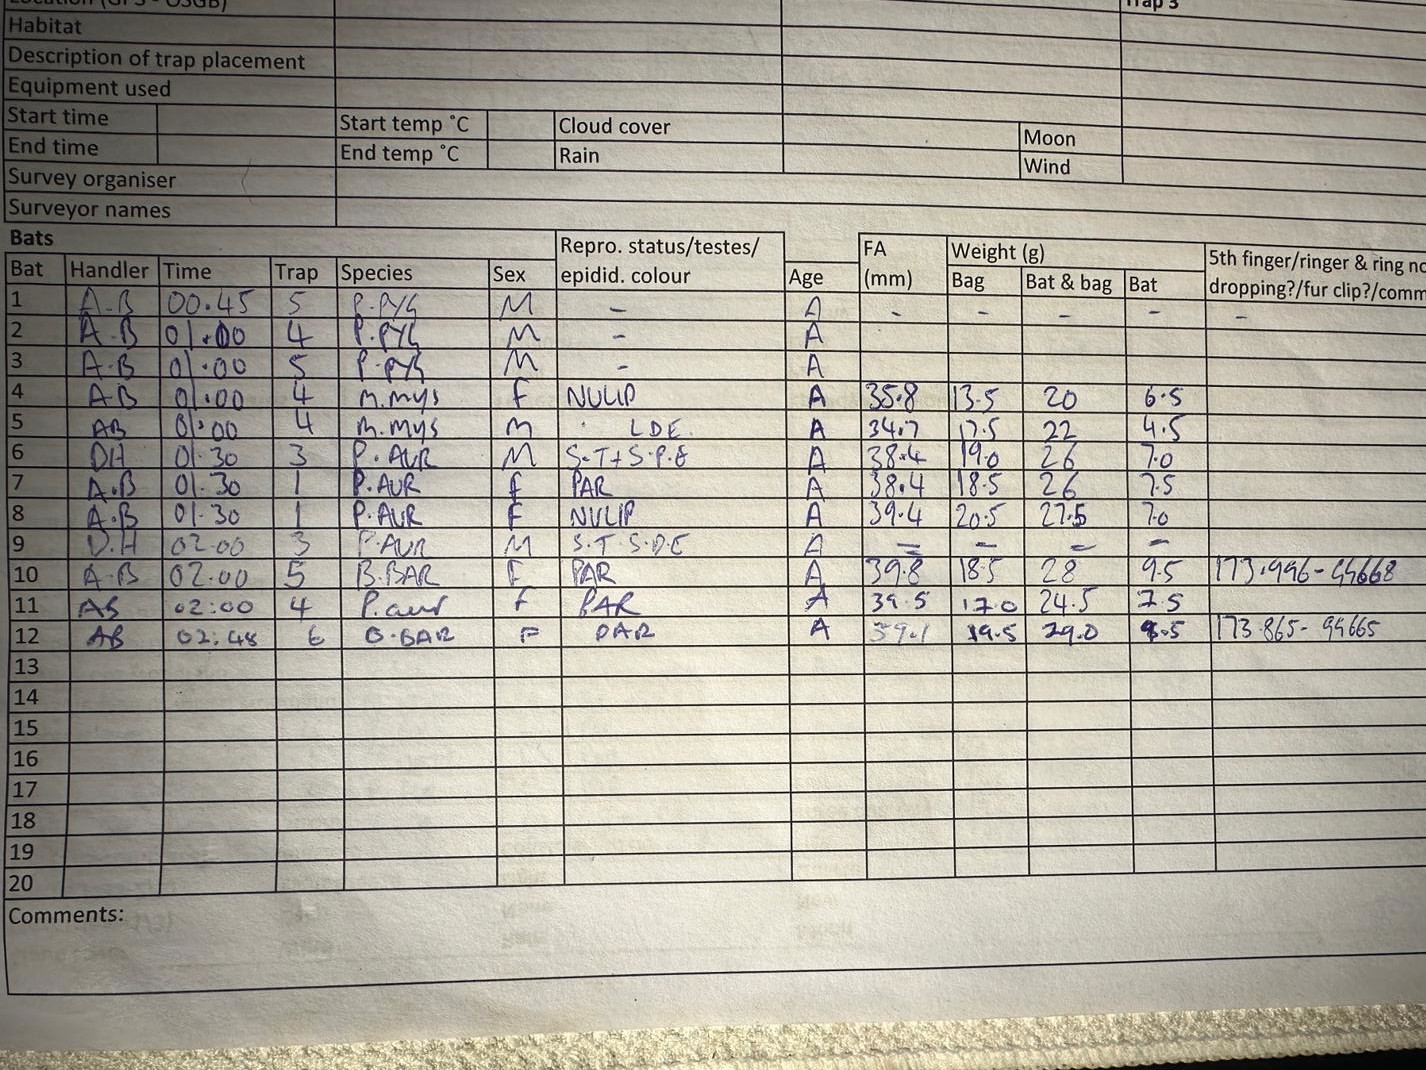 Location (GPS - OSGB) Trap 3
Habitat
Description of trap placement
Equipment used
Start time Start temp °C Cloud cover Moon
End time End temp °C Rain Wind
Survey organiser
Surveyor names
Bats
Bat Handler Time Trap Species Sex Repro. status/testes/ epidid. colour Age FA (mm) Weight (g) Bag Bat & bag Bat 5th finger/ringer & ring no dropping?/fur clip?/comm
1 A.B 00.45 5 P.PYG M - A - - - - -
2 A.B 01.00 4 P.PYG M - A
3 A.B 01.00 5 P.PYG M - A
4 AB 01.00 4 M.Mys F NULIP A 35.8 13.5 20 6.5
5 AB 01:00 4 M.Mys M LDE. A 34.7 17.5 22 4.5
6 DH 01.30 3 P.AUR M S.T+S.P.E A 38.4 19.0 26 7.0
7 A.B 01.30 1 P.AUR F PAR A 38.4 18.5 26 7.5
8 A.B 01.30 1 P.AUR F NULIP A 39.4 20.5 27.5 7.0
9 D.H 02.00 3 P.AUR M S.T.S.D.E A - - - -
10 A.B 02.00 5 B.BAR F PAR A 39.8 18.5 28 9.5 173.996-
11 AB 02:00 4 P.aur F PAR A 39.5 17.0 24.5 7.5
12 AB 02:48 6 B.BAR F PAR A 39.1 19.5 29.0 173.865-
13
14
15
16
17
18
19
20
Comments: